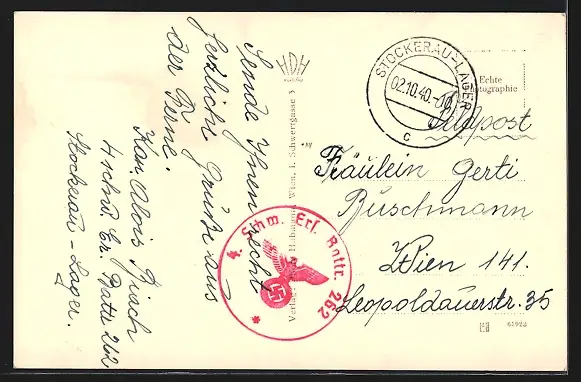 Sende Ihnen recht
herzliche Grüße aus
der Ferne.
Kan. Alois
4 schw. Er. Battr 262
Stockerau-Lager.
HDH
Wien, 1. Schwertgasse 3
4. Schw. Ers. Battr. 262
STOCKERAU-LAGER
02.10.40.
c
Echte
Photographie
Feldpost
Fräulein Gerti
Buschmann
Wien 141.
Leopoldauerstr. 35